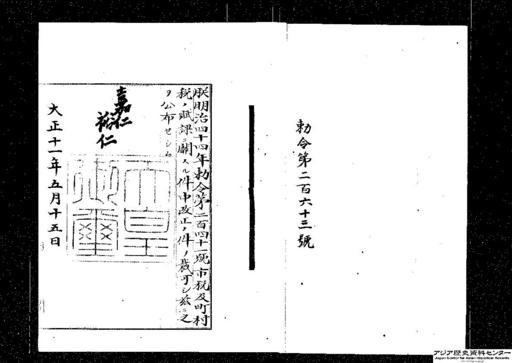 勅令第二百六十三號
朕明治四十四年勅令第二百四十一號市税及町村
税ノ賦課ニ關スル件中改正ノ件ヲ裁可シ茲ニ之
ヲ公布セシム
嘉仁
裕仁
天皇御璽
大正十一年五月十五日
アジア歴史資料センター
Japan Center for Asian Historical Records